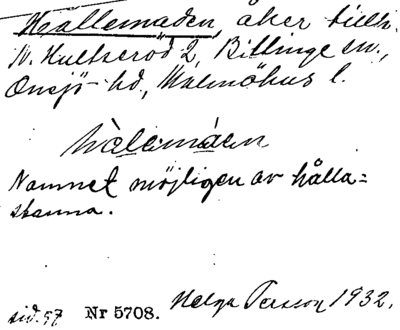 Hållemaden, åker tillh.
N. Hultseröd 2, Billinge sn.,
Onsjö hd., Malmöhus l.
hålemáen
Namnet möjligen av hålla=
stanna.
sid. 57 Nr 5708. Helga Persson 1932.